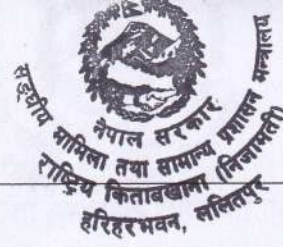 नेपाल सरकार
सङ्घीय मामिला तथा सामान्य प्रशासन मन्त्रालय
राष्ट्रिय किताबखाना (निजामती)
हरिहरभवन, ललितपुर